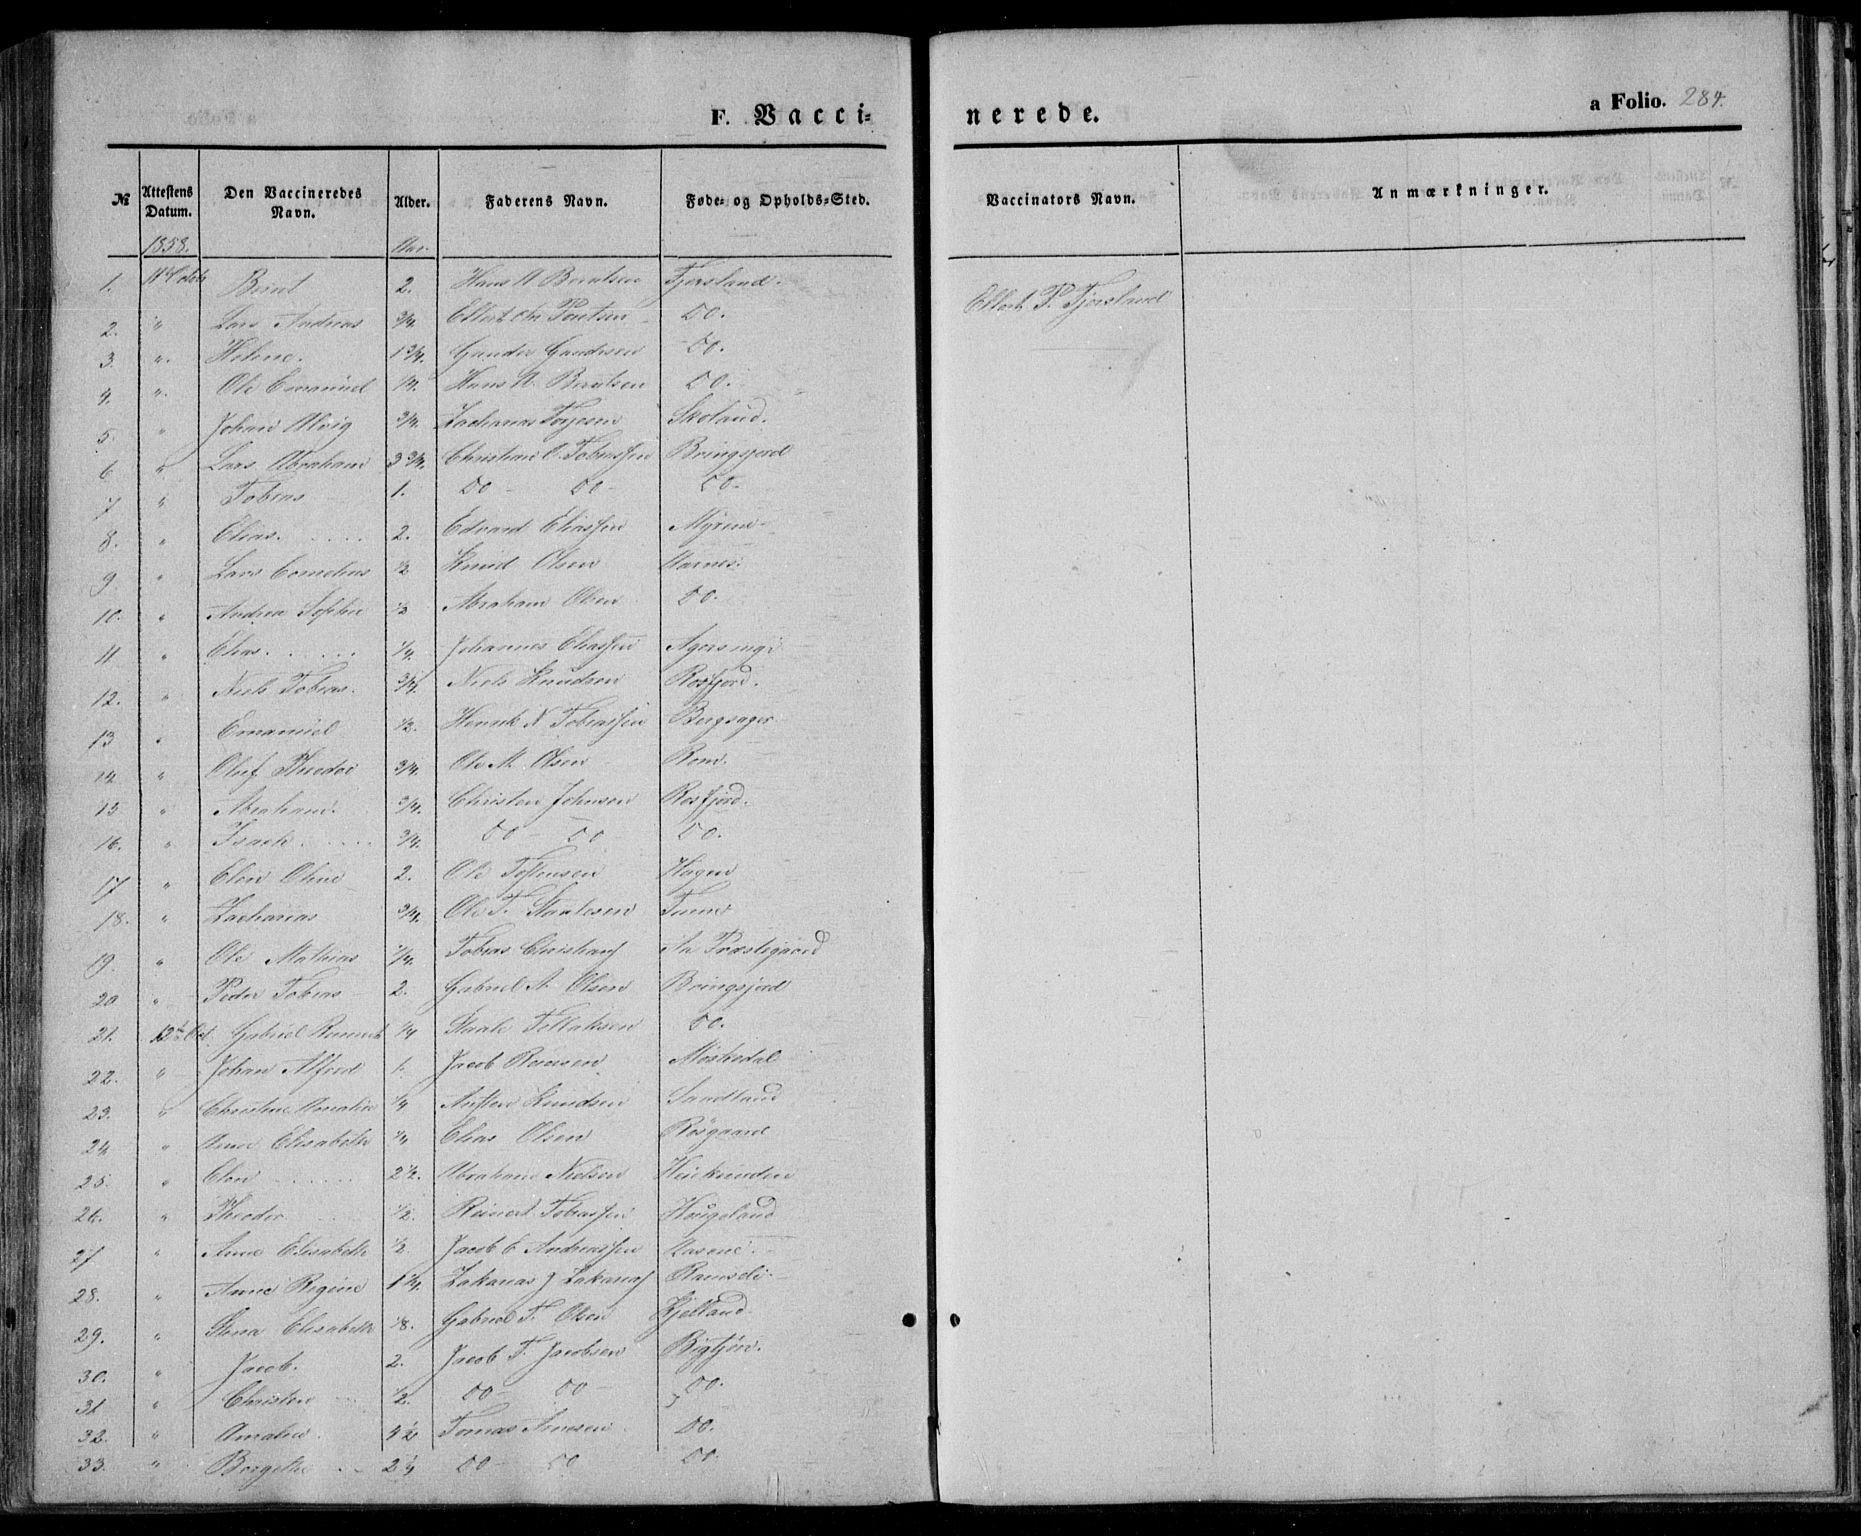 F. Vacci-nerede. a Folio. 284.
№ Attestens Datum. Den Vaccineredes Navn. Alder. Faderens Navn. Føde- og Opholds-Sted. Vaccinators Navn. Anmærkninger.
1858. Aar.
1. 11te Octob Bernt 2. Hans A Berntsen Fjersland. Ellert P. Fjersland
2. " Lars Andreas 3/4. Ellert Chr Pontsen Do.
3. " Helene. 1 3/4. Gunder Gundersen Do.
4. " Ole Emanuel 1/4. Hans A. Berntsen Do.
5. " Johan Alvig 3/4. Zacharias Torjesen Skoland.
6. " Lars Abraham 3 3/4. Christian O. Tobiassen Bringsjord
7. " Tobias 1. Do Do Do.
8. " Elias. 2. Edvard Eliassen Myrene
9. " Lars Cornelius 1/2 Knud Olsen Aarnes.
10. " Andrea Sophie 1/2 Abraham Olsen Do.
11. " Elias. 1/4. Johannes Eliassen
12. " Niels Tobias. 3/4. Niels Knudsen Rosfjord.
13 " Emanuel 1/2. Henrik N Tobiassen Bergsager
14. " Oluf Theodor 3/4. Ole M. Olsen Rom.
15 " Abraham. 3/4. Christen Johnsen Rosfjord.
16. " Isach. 3/4. Do Do Do.
17 " Elen Oline 2. Ole Tostensen Hagen
18. " Zacharias 3/4. Ole T. Staalesen
19. " Ole Mathias 1/4. Tobias Christians Præstegaard
20 " Peder Tobias 2. Gabriel A. Olsen Bringsjord
21. 12te Oct. Gabriel Reinert 1/4 Staale Tollaksen Do.
22. " Johan Alfred 1. Jacob Reiersen Møskedal
23. " Christine Amalie 1/4 Austen Knudsen Sandland
24 " Anne Elisabeth 1/4 Elias Olsen Røsgaard
25. " Elen 2 1/2. Abraham Nielsen
26. " Theodor 1/2. Reinert Tobiassen Høugeland
27 " Anne Elisabeth 1/2. Jacob E Andreassen Aasene.
28. " Anne Regine 1 1/4. Zakarias J Zakarias Ramsli.
29. " Stena Elisabeth 1/8. Gabriel T. Olsen Kjelland.
30. " Jacob. 2. Jacob T. Jacobsen Bigtjøn.
31 " Christen 1/2. Do Do Do.
32. " Amalie. Tomas Do.
33. " Borgethe 2 1/4 Do Do Do.